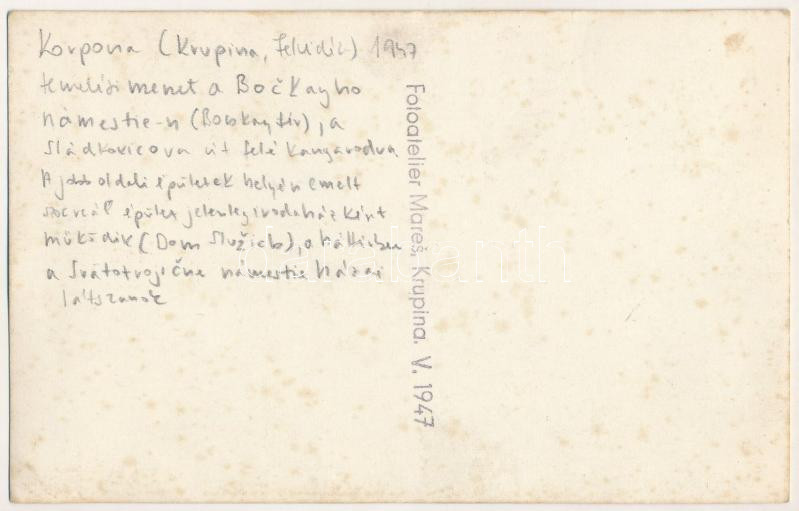 Korpona (Krupina, Felvidék) 1947
temetési menet a Bočkayho
námestie-n (Bocskay tér), a
Sládkovicova út felé kanyarodva
A jobb oldali épületek helyén emelt
szocreál épület jelenleg irodaházként
működik (Dom Služieb), a háttérben
a Svätotrojičné námestie házai
látszanak
Fotoatelier Mareš, Krupina. V. 1947
darabanth